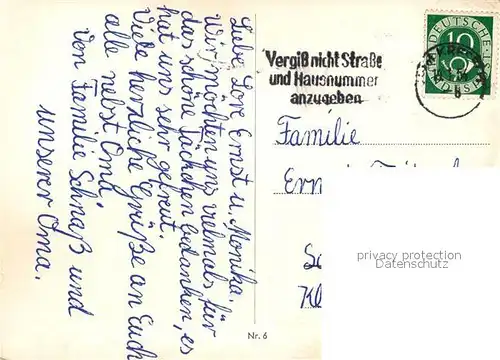 Liebe Lore, Ernst u. Monika.
Wir möchten uns vielmals für
das schöne Päckchen bedanken, es
hat uns sehr gefreut.
Viele herzliche Grüße an Euch
alle nebst Oma
von Familie Schnaß und
unserer Oma.
Vergiß nicht Straße
und Hausnummer
anzugeben
DEUTSCHE
10
Familie
privacy protection
Datenschutz
Nr. 6